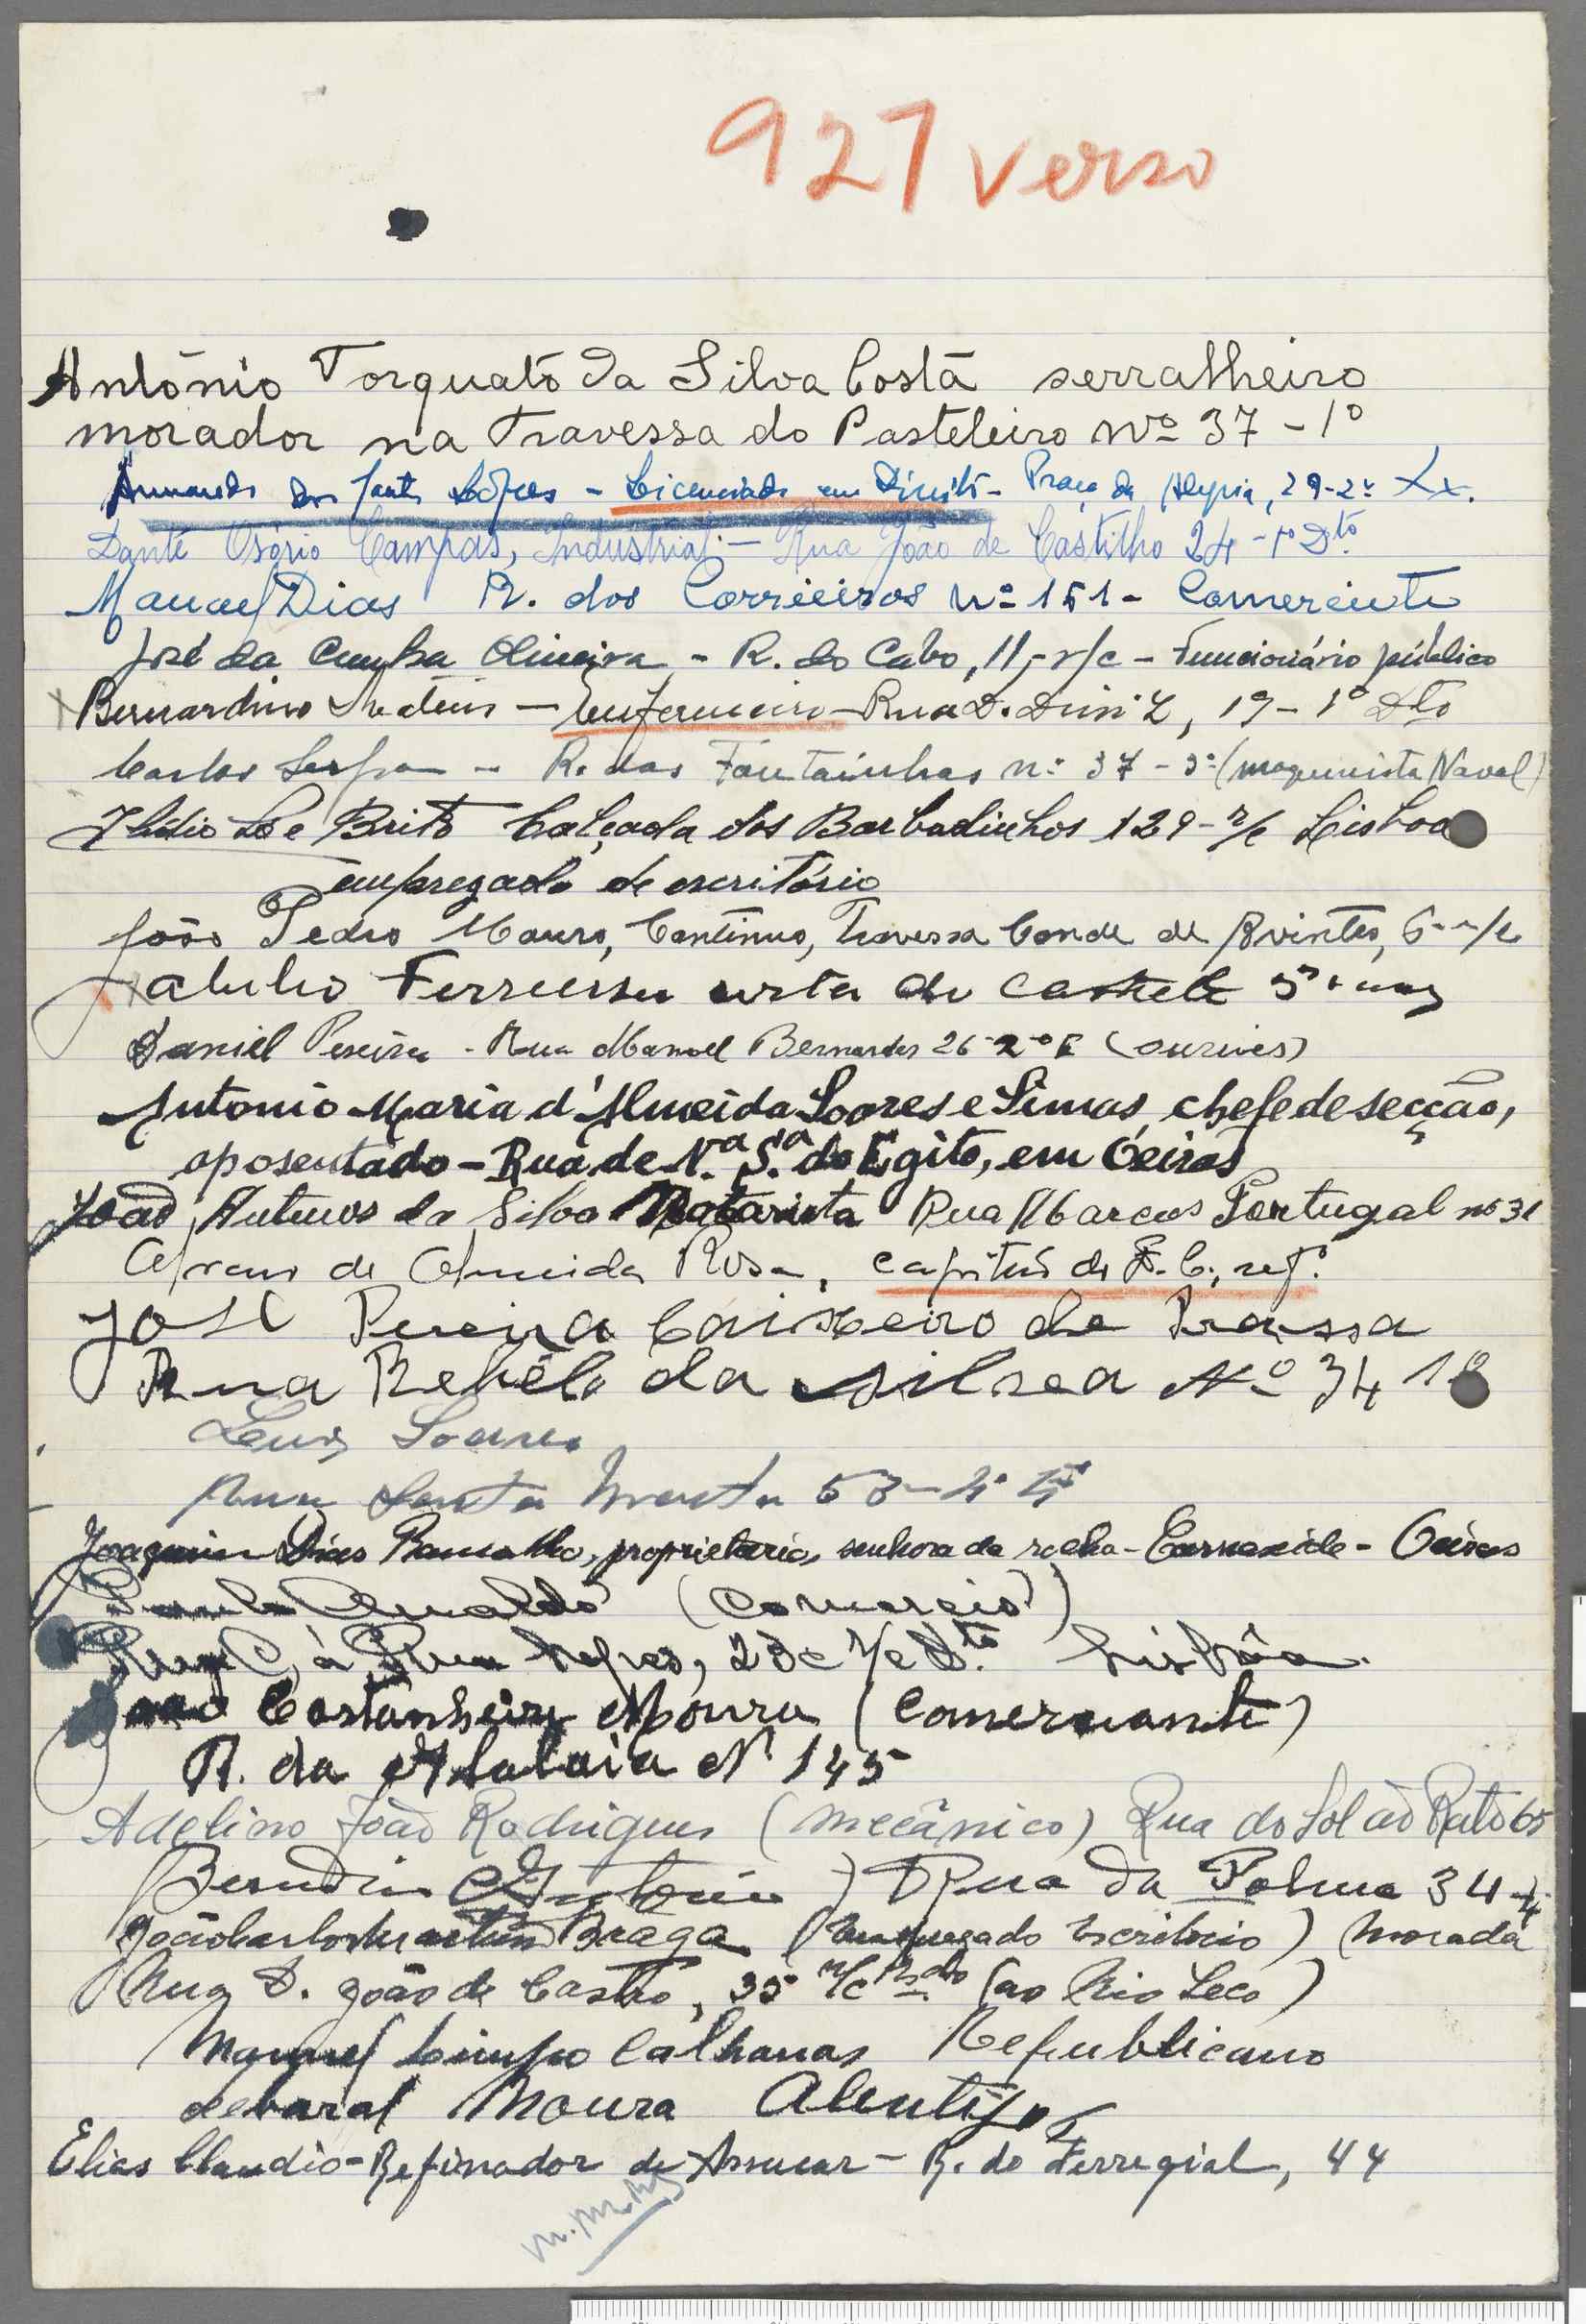 927 verso
António Torquato da Silva Costa serralheiro
morador na Travessa do Pasteleiro Nº 37 - 1º
Armando dos Santos Lopes - Licenciado em Direito - Praça da Alegria, 29-2º Lx.
Dante Osório Campos, Industrial - Rua João de Castilho 24 - 1º Dtº
Manuel Dias R. dos Correeiros nº 151 - Comerciante
José da Cunha Oliveira - R. do Cabo, 11, r/c - Funcionário público
Bernardino - Enfermeiro - Rua D. Diniz, 19 - 1º Dto
Carlos Serpa - R. das Fontainhas nº 37 - 3º (maquinista Naval)
Ilídio Sá e Brito Calçada dos Barbadinhos 129 - r/c Lisboa
empregado de escritório
João Pedro Mouro, Contínuo, Travessa Conde de Avintes, 6 - r/c
costa do castelo
Daniel Pereira - Rua Manuel Bernardes 26-2º E (ourives)
Antonio Maria d'Almeida Soares e Simas, chefe de secção,
aposentado - Rua de N.ª S.ª do Egito, em Oeiras
João Antunes da Silva Rua Marcos Portugal nº 31
de Almeida Rosa, capitão do refº.
José Pereira Caixeiro de Prassa
Rua Rebélo da Silva Nº 34 1º
Luis Soares
Rua Santa Marta 53 - 4º
Joaquim Dias Ramalho, proprietario, senhora da rocha - Carnaxide - Oeiras
Arnaldo (Comercio)
Rua C, à Rua Lopes, 23 r/c Dto. Lisbôa.
João Castanheira Moura (Comerciante)
R. da Atalaia N 145
Adelino João Rodrigues (mecânico) Rua do Sol ao Rato 65
Rua da Palma 34-4º
João Carlos Martins Braga (Empregado Escritorio) Morada
Rua D. João de Castro, 35 r/c (ao Rio Seco)
Manuel Limpo Calhanas Republicano
Moura Alentejo
Elias Claudio - Refinador de Assucar - R. do Ferregial, 44